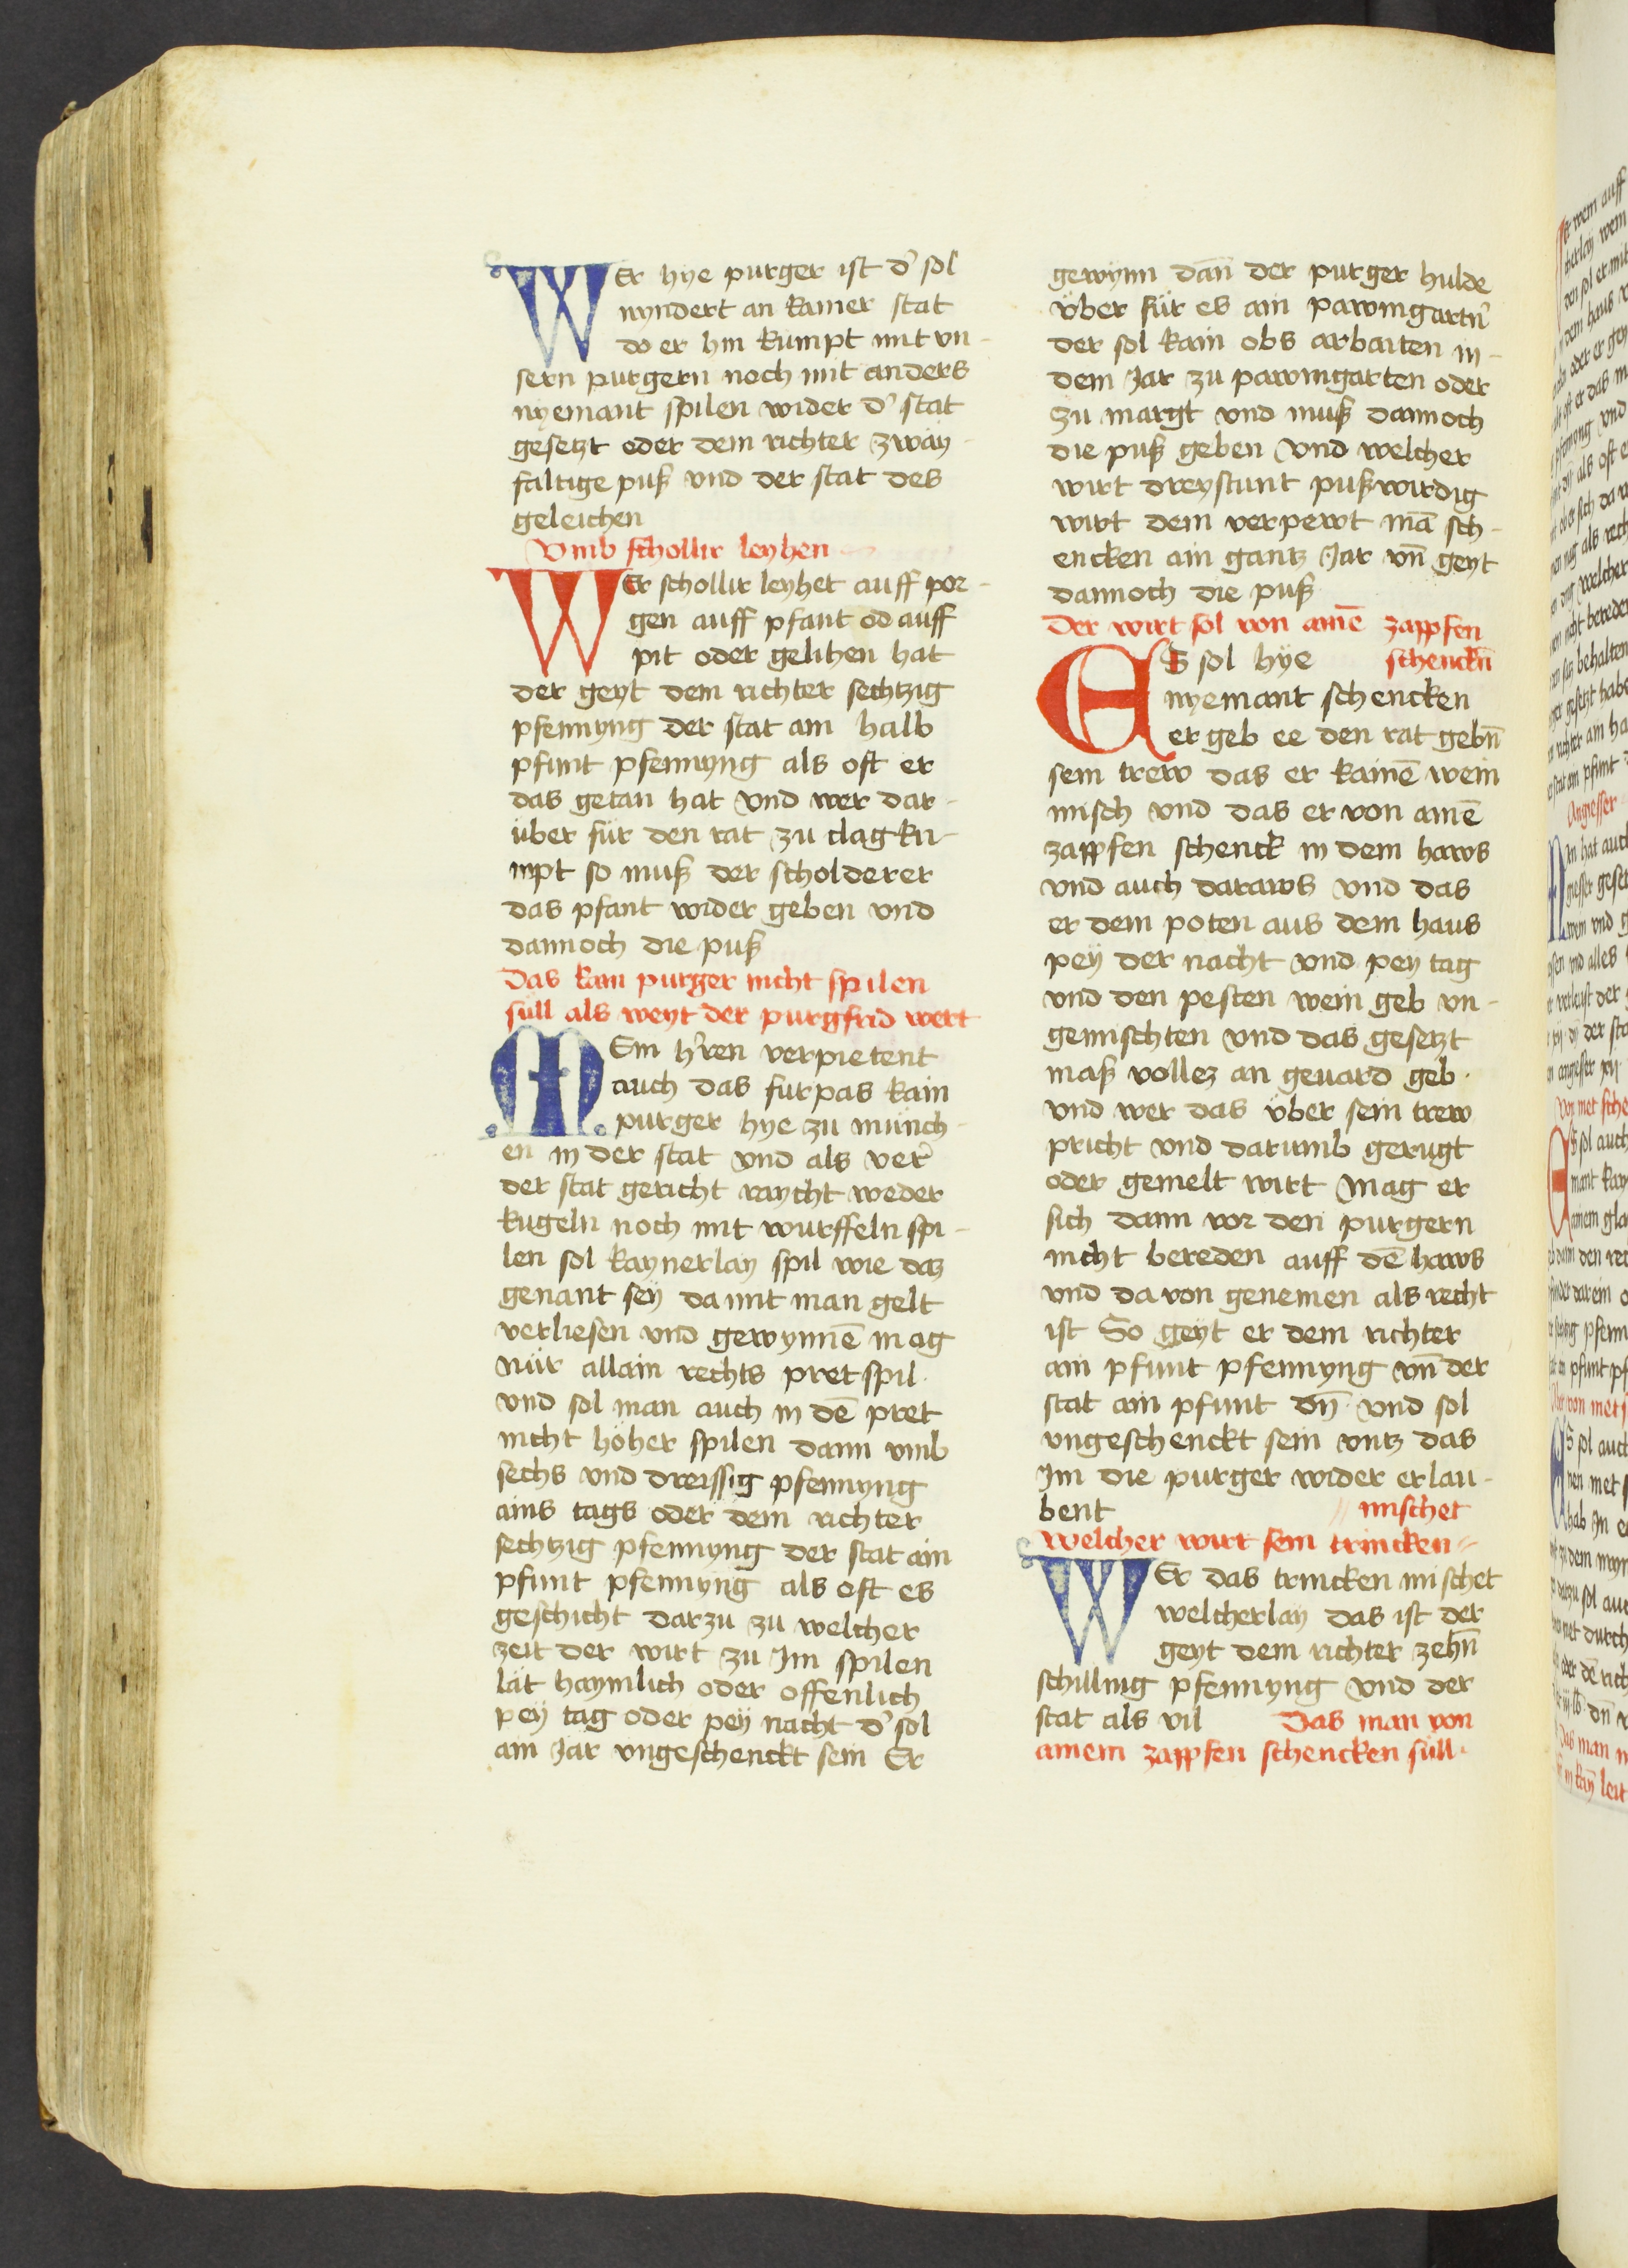 WEr hye purger ist d' sol
nyndert an kainer stat
do er hin kumpt mit vn-
sern purgern noch mit anders
nyemant spilen wider d' stat
gesetzt oder dem richter zwäy-
faltige puß vnd der stat des
geleichen
Vmb schollir leyhen
WEr schollir leyhet auff por-
gen auff pfant od auff
pit oder gelihen hat
der geyt dem richter sechtzig
pfennyng der stat ain halb
pfunt pfennyng als oft er
das getan hat vnd wer dar-
über für den rat zu clag ku-
mpt so muß der scholderer
das pfant wider geben vnd
dannoch die puß
Das kain purger nicht spilen
süll als weyt der purgfrid wert
MEin h'ren verpietent
auch das furpas kain
purger hye zu münch-
en in der stat vnd als ver'
der stat gericht raycht weder
kugeln noch mit wurffeln spi-
len sol kaynerlay spil wie daz
genant seÿ da mit man gelt
verliesen vnd gewynnē mag
Nür allain rechts pretspil.
vnd sol man auch in dē pret
nicht höher spilen dann vmb
sechs vnd dreissig pfennyng
ains tags oder dem richter
sechtzig pfennyng der stat ain
pfunt pfennyng als oft es
geschicht darzu zu welcher
zeit der wirt zu Im spilen
lät haymlich oder offenlich
peÿ tag oder peÿ nacht d' sol
ain Jar vngeschenckt sein Er
gewynn dān der purger hulde
vber für es ain pawmgartn'
der sol kain obs arbaiten in-
dem Jar zu pawmgarten oder
zu margt vnd muß dannoch
die puß geben vnd welcher
wirt dreystunt pußwirdig
wirt dem verpewt mā sch-
encken ain gantz Jar vn̄ geyt
dannoch die puß
Der wirt sol von ainē zapfen
schenckn̄
ES sol hÿe
nyemant schencken
er geb ee den rat gebn̄
sein trew das er kainē wein
misch vnd das er von ainē
zapfen schenck in dem haws
vnd auch daraws vnd das
er dem poten aus dem haus
peÿ der nacht vnd pey tag
vnd den pesten wein geb vn-
gemischten vnd das gesetzt
maß vollez an geuard geb.
vnd wer das vber sein trew
pricht vnd darumb gerugt
oder gemelt wirt mag er
sich dann vor den purgern
nicht bereden auff dē haws
vnd da von genemen als recht
ist So geÿt er dem richter
ain pfunt pfennyng vn̄ der
stat ain pfunt dn̄ vnd sol
vngeschenckt sein vntz das
Im die purger wider erlau-
bent
mischet
Welcher wirt sein trincken
WEr das trincken mischet
welcherlay das ist der
geyt dem richter zehn̄
schilling pfennyng vnd der
stat als vil Das man von
ainem zapfen schencken süll.